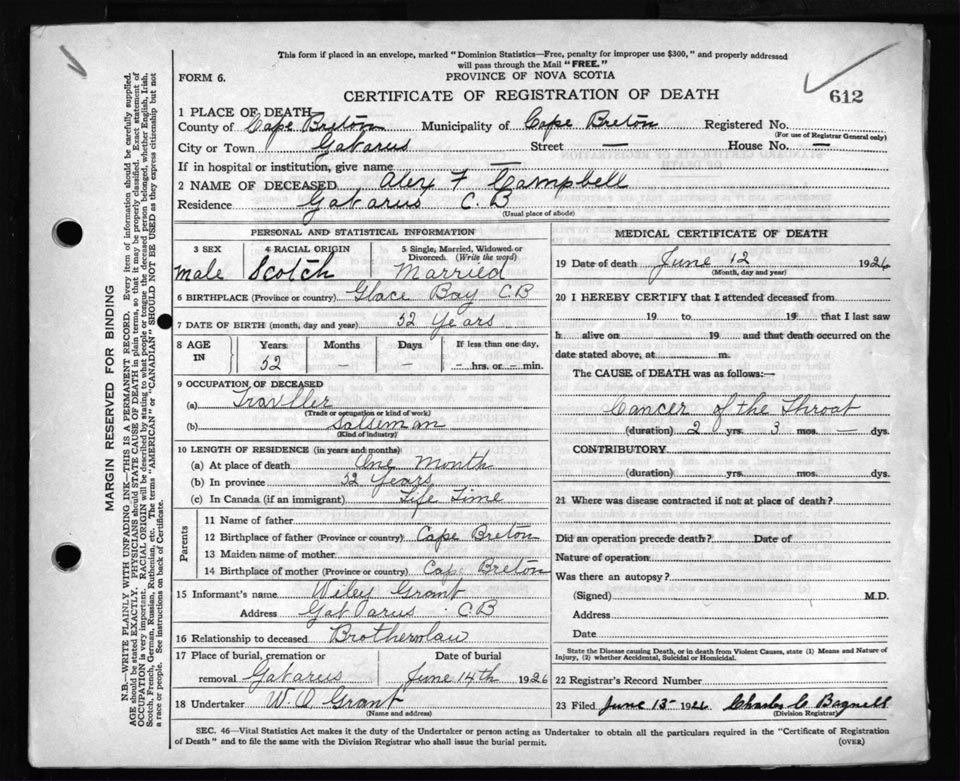 This form if placed in an envelope, marked "Dominion Statistics—Free, penalty for improper use $300," and properly addressed
will pass through the Mail "FREE."
FORM 6.
PROVINCE OF NOVA SCOTIA
CERTIFICATE OF REGISTRATION OF DEATH
612
1 PLACE OF DEATH
County of Cape Breton Municipality of Cape Breton Registered No.
(For use of Registrar General only)
City or Town Gabarus Street — House No. —
If in hospital or institution, give name —
2 NAME OF DECEASED Alex F Campbell
Residence Gabarus C.B
(Usual place of abode)
PERSONAL AND STATISTICAL INFORMATION
3 SEX 4 RACIAL ORIGIN 5 Single, Married, Widowed or
Divorced. (Write the word)
male Scotch Married
6 BIRTHPLACE (Province or country) Glace Bay C.B
7 DATE OF BIRTH (month, day and year) 52 years
8 AGE IN Years Months Days If less than one day,
52 — — — hrs. or — min.
9 OCCUPATION OF DECEASED
(a) Travller
(Trade or occupation or kind of work)
(b) Salseman
(Kind of industry)
10 LENGTH OF RESIDENCE (in years and months)
(a) At place of death One Month
(b) In province 52 Years
(c) In Canada (if an immigrant) Life Time
Parents
11 Name of father
12 Birthplace of father (Province or country) Cape Breton
13 Maiden name of mother
14 Birthplace of mother (Province or country) Cape Breton
15 Informant's name Wiley Grant
Address Gabarus C.B
16 Relationship to deceased Brotherinlaw
17 Place of burial, cremation or Date of burial
removal Gabarus June 14th 1926
18 Undertaker W.O Grant
(Name and address)
MEDICAL CERTIFICATE OF DEATH
19 Date of death June 12 1926
(Month, day and year)
20 I HEREBY CERTIFY that I attended deceased from
19 to 19 that I last saw
h alive on 19 and that death occurred on the
date stated above, at m.
The CAUSE of DEATH was as follows:—
Cancer of the Throat
(duration) 2 yrs. 3 mos. — dys.
CONTRIBUTORY
(duration) yrs. mos. dys.
21 Where was disease contracted if not at place of death?
Did an operation precede death? Date of
Nature of operation
Was there an autopsy?
(Signed) M.D.
Address
Date
State the Disease causing Death, or in death from Violent Causes, state (1) Means and Nature of
Injury, (2) whether Accidental, Suicidal or Homicidal.
22 Registrar's Record Number
23 Filed June 13th 1926 Charles C Bagnell
(Division Registrar)
SEC. 46—Vital Statistics Act makes it the duty of the Undertaker or person acting as Undertaker to obtain all the particulars required in the "Certificate of Registration
of Death" and to file the same with the Division Registrar who shall issue the burial permit. (OVER)
MARGIN RESERVED FOR BINDING
N.B.—WRITE PLAINLY WITH UNFADING INK—THIS IS A PERMANENT RECORD. Every item of information should be carefully supplied.
AGE should be stated EXACTLY. PHYSICIANS should STATE CAUSE OF DEATH in plain terms, so that it may be properly classified. Exact statement of
OCCUPATION is very important. RACIAL ORIGIN will be described by stating to what people or tongue the deceased person belonged, whether English, Irish,
Scotch, French, German, Russian, Ruthenian, etc. The terms "AMERICAN" or "CANADIAN" SHOULD NOT BE USED as they express citizenship but not
a race or people. See instructions on back of Certificate.